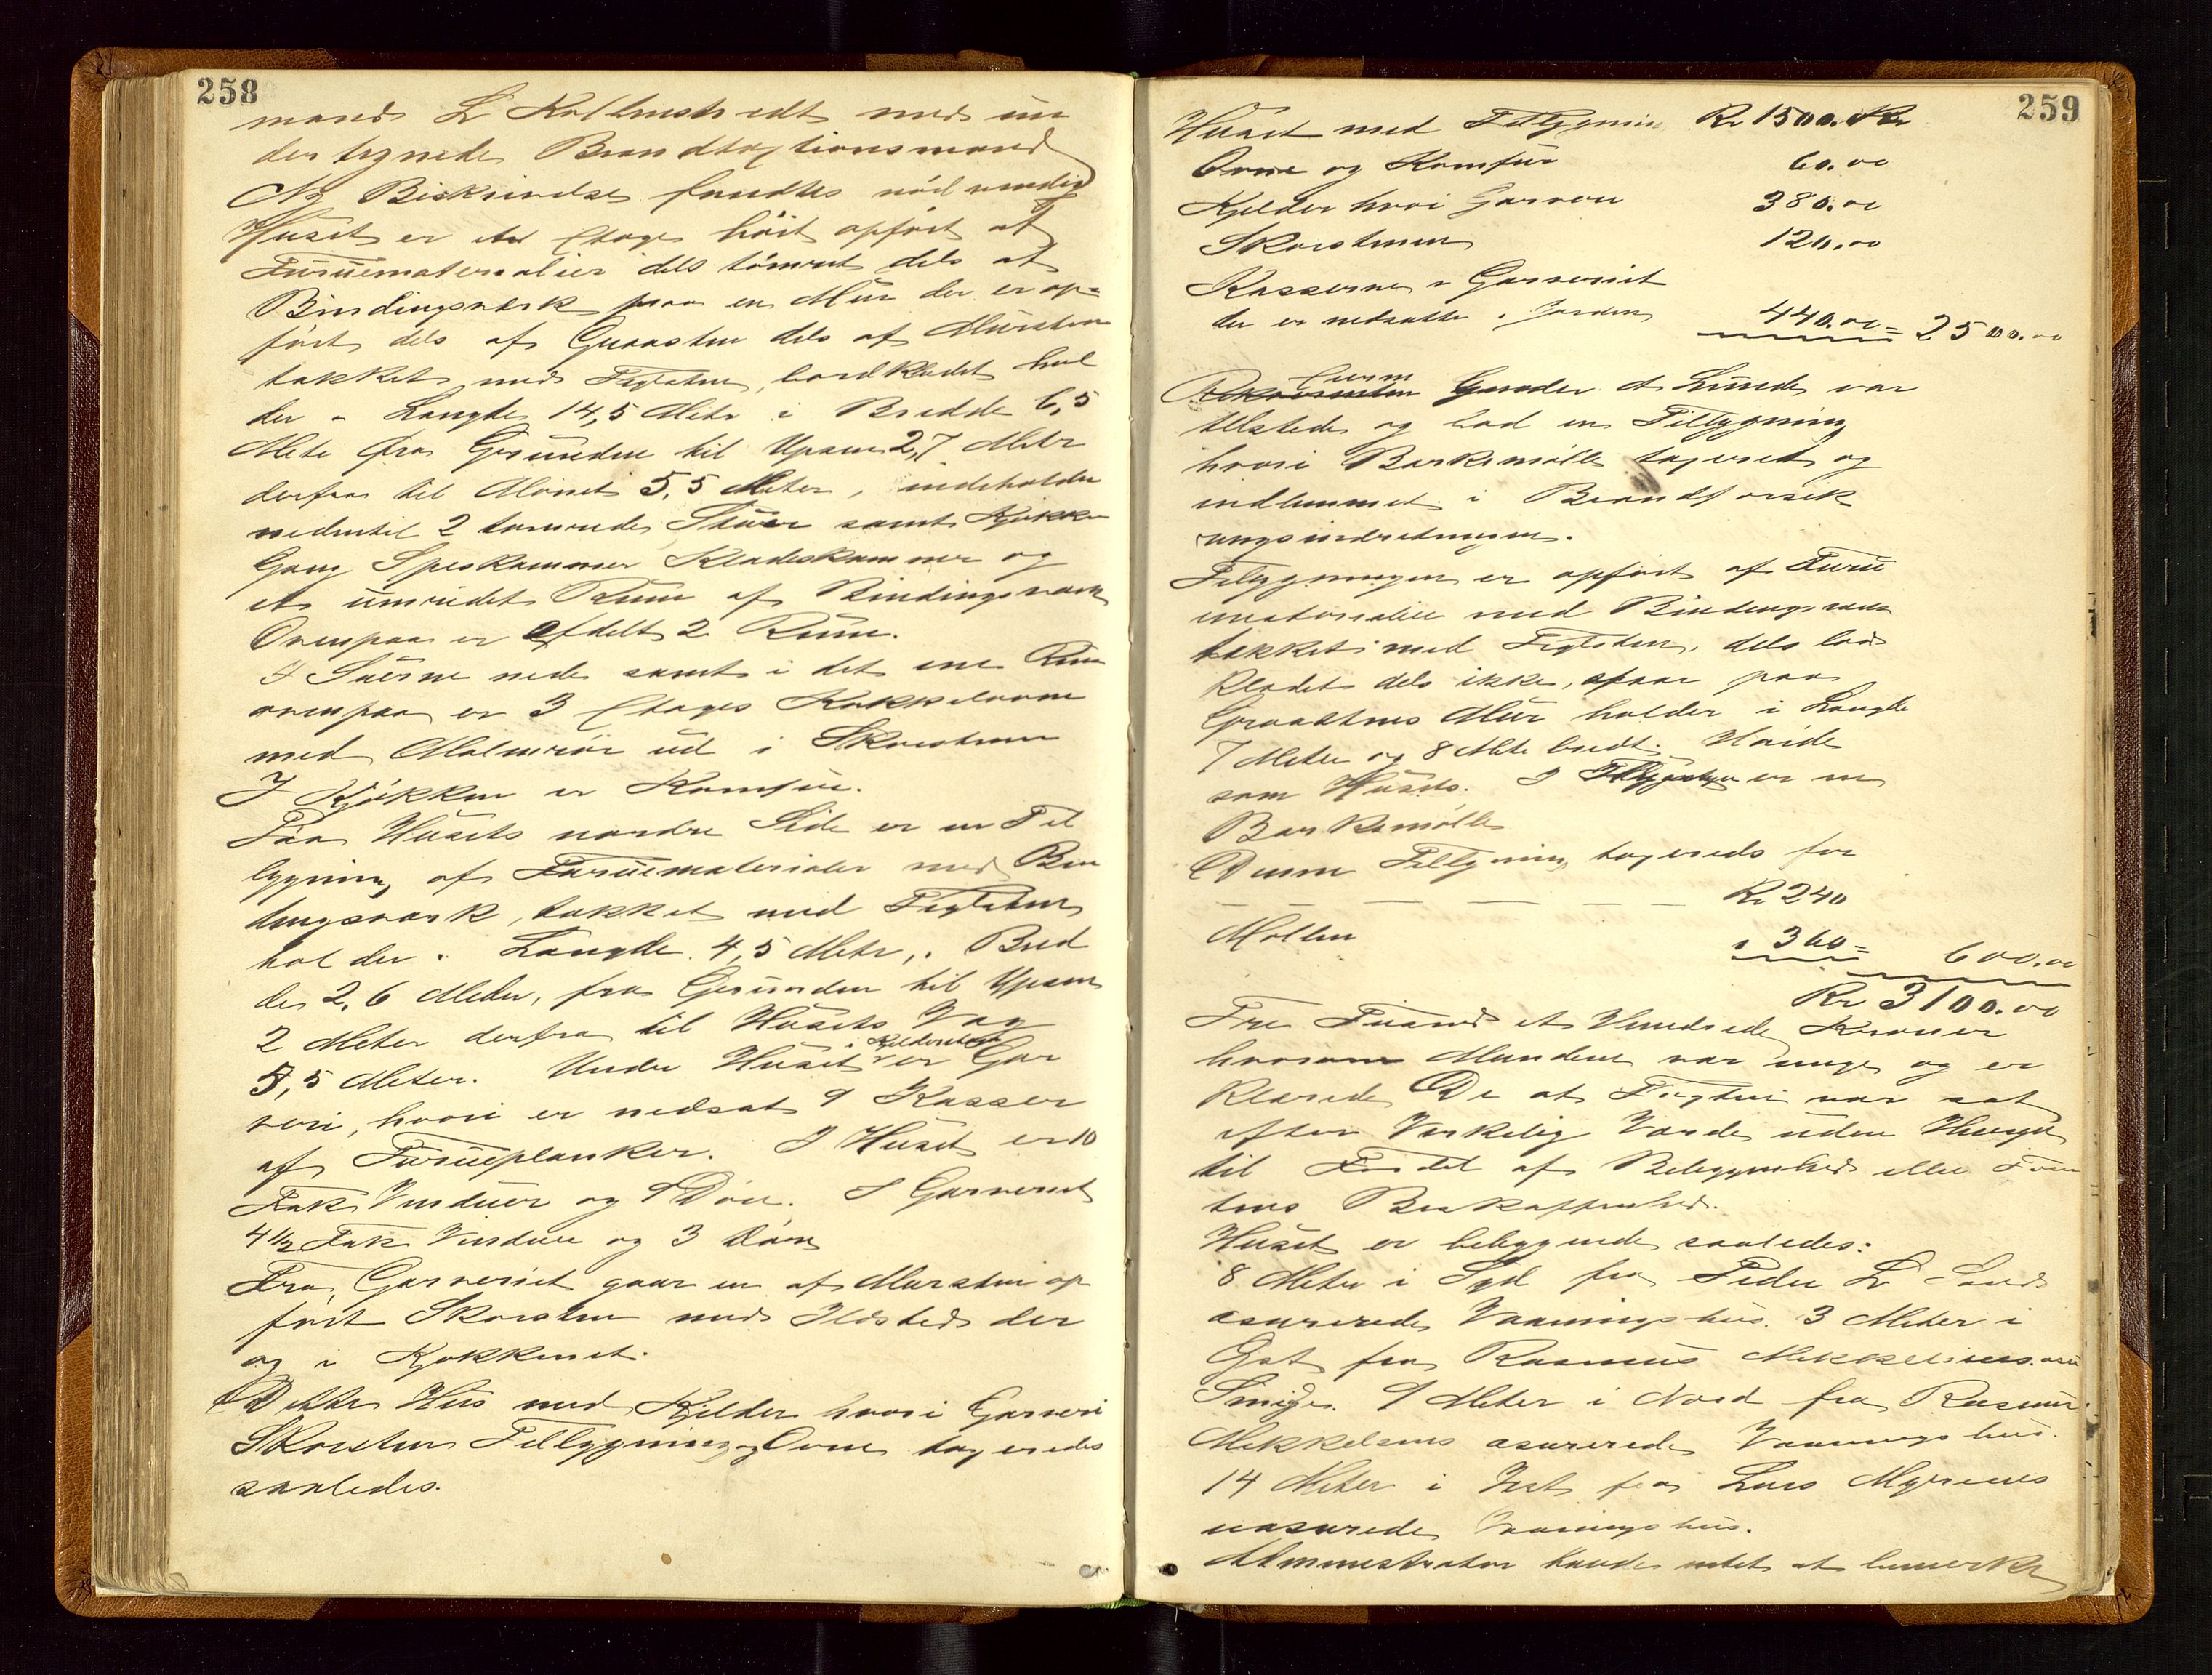 258
mand L Kolbenstvedt med un
dertegnede Brandtaxtionsmand
Ny Beskrivelse fandtes nödvendig
Huset er et Etage höit opfört af
Furuematerialier dels tömret dels af
Bindingsverk paa en Mur der er op=
fört dels af Graasten dels af Mursten
takket med Teglsten, bordklædet hol
der i Længde 14,5 Meter i Bredde 6,5
Mete fra Grunden til Upsen 2,7 Metr
derfra til Mönet 5,5 Meter, indeholder
nedentil 2 tømrede Stuer samt Kjøkken
Gang Speskammer Klædeskammer og
et uinredet Rum af Bindingsværk
Ovenpaa er afdelt 2 Rum.
I Stuerne nede samt i det ene Rum
ovenpaa er 3 Etages Kakkelovne
med Malmrör ud i Skorstenen
I Kjökken er Komfur.
Paa Husets nordre Side er en Til
bygning af Furuematerialer med Bin
dingsværk, takket med Teglsten
holder i Længde 4,5 Metr, i Bred
de 2,6 Meter, fra Grunden til Upsen
2 Meter derfra til Husets Væg
3,5 Meter. Under Huset i Kjelderetagen er Gar
veri, hvori er nedsat 9 Kasser
af Furueplanker. I Huset er 10
Fak Vinduer og 9 Döre. I Garveriet
4 1/2 Fak Vinduer og 3 Döre
Fra Garveriet gaar en af Mursten op
fört Skorsten med Ildsted der
og i Kjøkkenet.
Dette Hus med Kjelder hvori Garveri
Skorsten Tilbygning og Ovne taxeredes
saaledes.
259
Huset med Tilbygning Kr 1500.
Ovne og Komfur 60.00
Kjelder hvori Garveri 380.00
Skorstenen 120.00
Kasserne i Garveriet
der er nedsatte i Jorden 440.00 = 2500.00
Gunder A Lunde var
tilstede og bad en Tilbygning
hvori Barkemølle taxeret og
indlemmet i Brandforsik
ringsindretningen.
Tilbygningen er opført af Furu
materialier med Bindingsværk
takket med Teglsten, dels bord
klædet dels ikke, staar paa
Graastens Mur holder i Længde
7 Meter og 8 Mete bredt. Høide
som Husets. I Tilbygningen er en
Barkemølle
Denne Tilbygning taxereds for
— — — — — Kr 240
Möllen " 360 = 600.00
Kr 3100.00
Tre Tusind et Hundrede Kroner
hvorom Mændene var enige og er
klærede De at Taxten var sat
efter Verkelig Værde uden Hensyn
til Fordel af Beliggenhed eller Tom
tens Beskaffenhed.
Huset er beliggende saaledes:
8 Meter i Syd fra Peder L Lunds
asurerede Vaaningshus. 3 Meter i
Øst fra Rasmus Mikkelsens
Smidje. 9 Meter i Nord fra Rasmus
Mikkelsens asurerede Vaaningshus.
14 Meter i Vest fra Lars Myrenes
uasurede Vaaningshus.
Administrator havde intet at bemerke